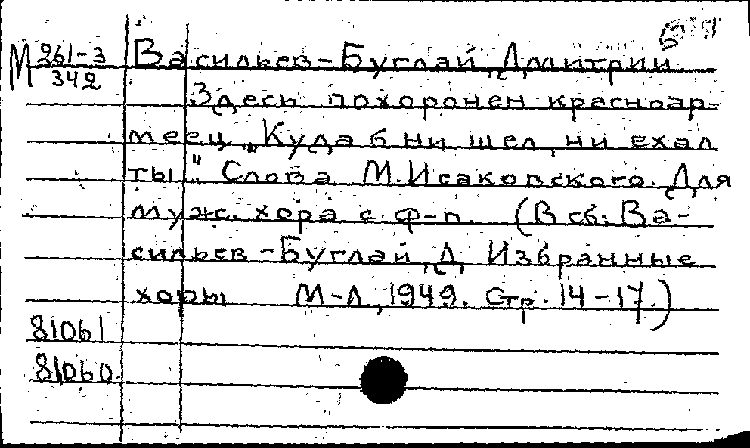 М 261-3
342
Васильев-Буглай, Дмитрий
Здесь похоронен красноар-
меец „Куда б ни шел, ни ехал
ты." Слова М. Исаковского. Для
муж. хора с ф-п. (В сб: Ва-
сильев-Буглай, Д. Избранные
хоры М-Л, 1949. Стр. 14-17.)
81061
81060